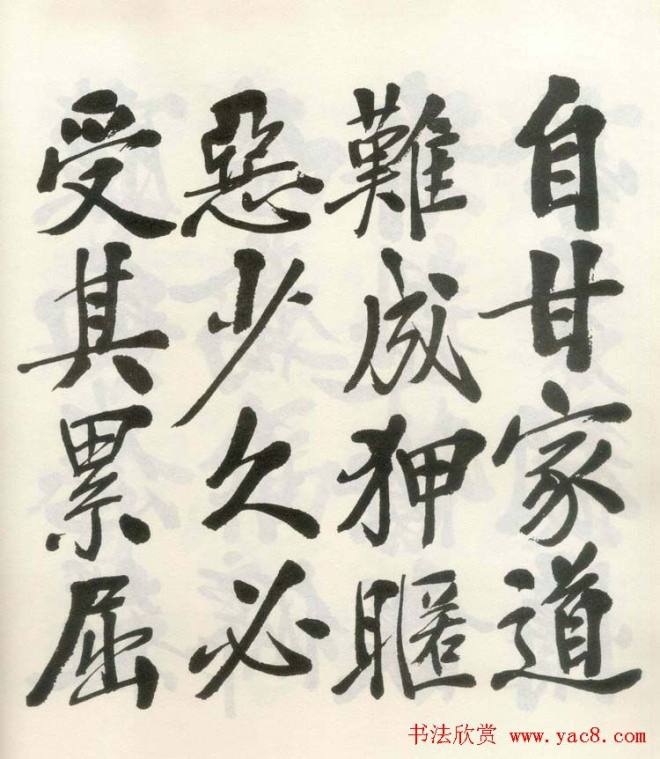 自甘家道
難成狎暱
惡少久必
受其累屈
书法欣赏 www.yac8.com